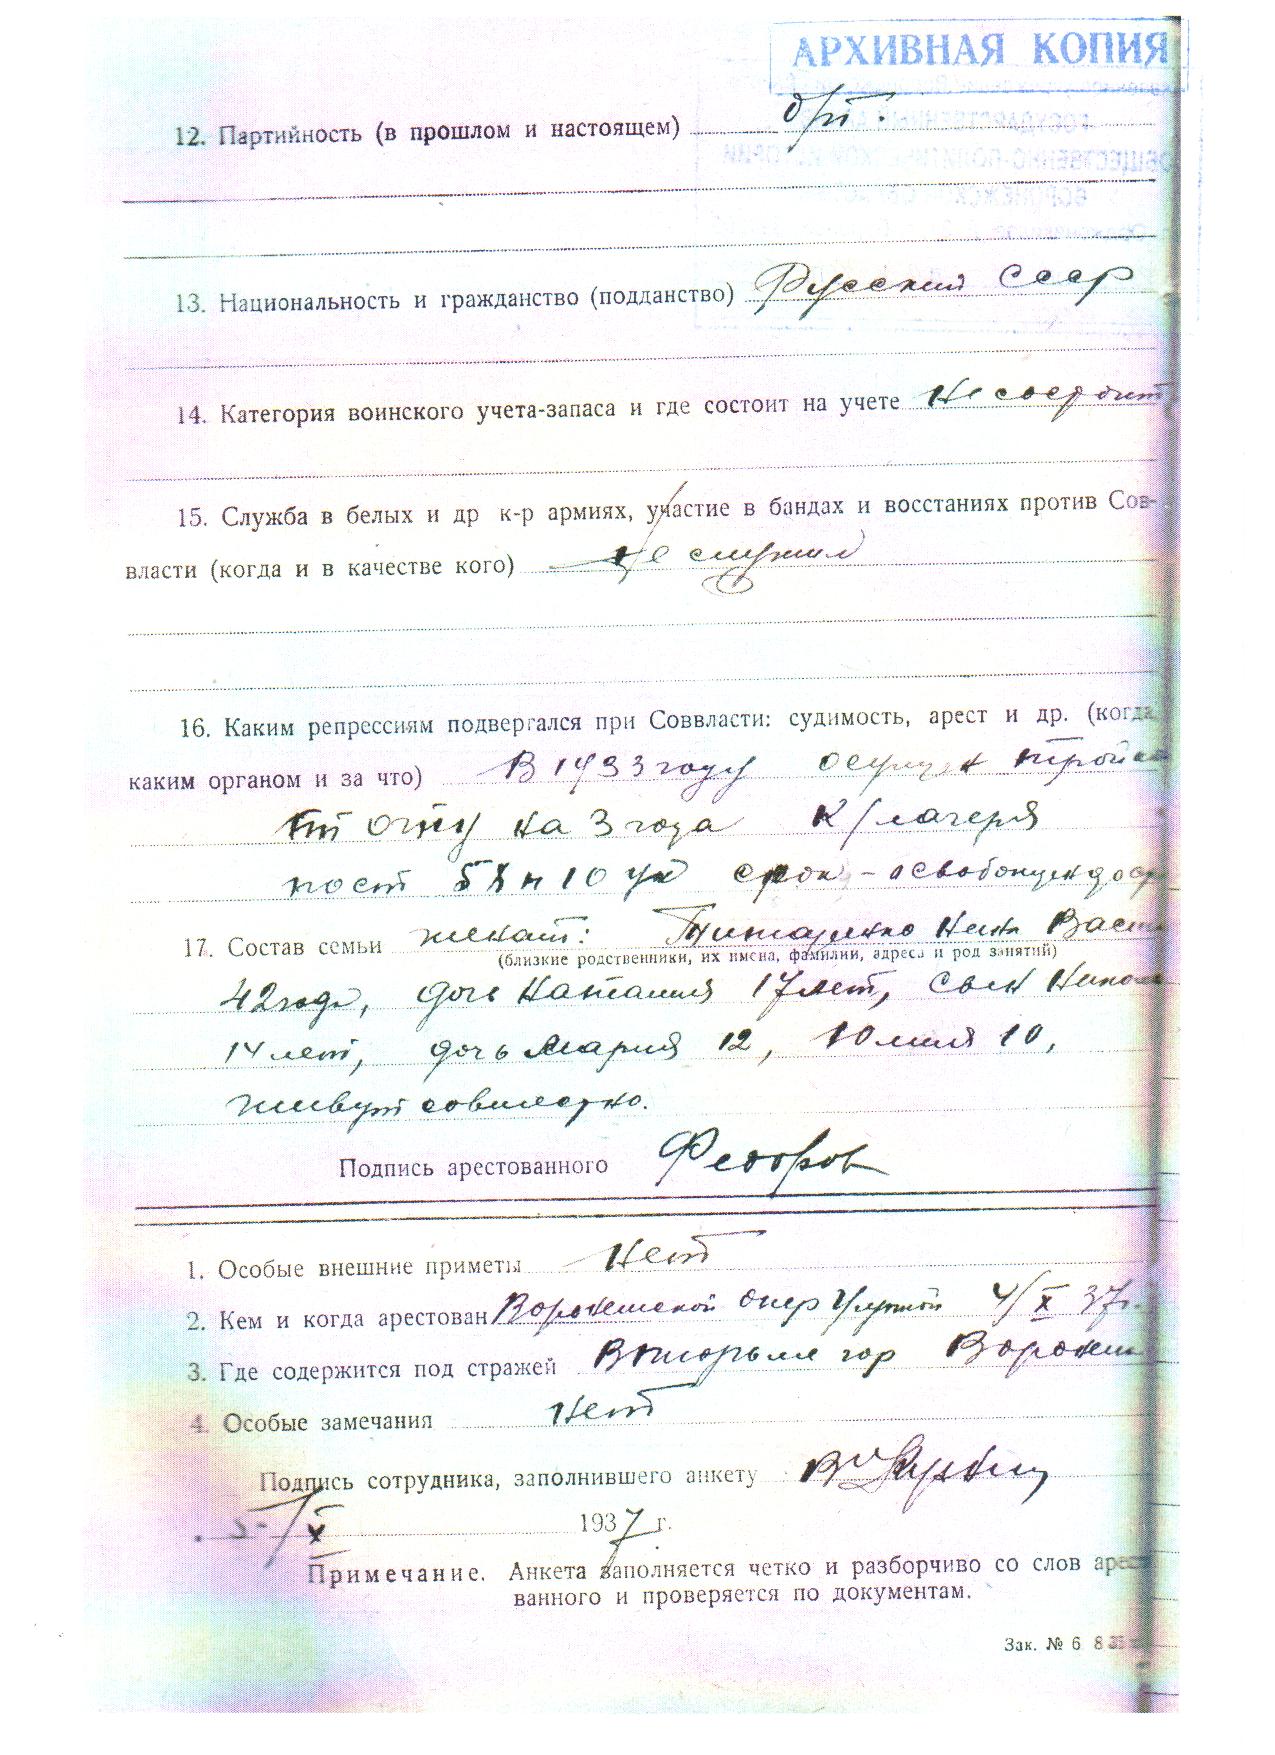 АРХИВНАЯ КОПИЯ
12. Партийность (в прошлом и настоящем) б/п.
13. Национальность и гражданство (подданство) Русский СССР
14. Категория воинского учета-запаса и где состоит на учете Не состоит
15. Служба в белых и др к-р армиях, участие в бандах и восстаниях против Сов-
власти (когда и в качестве кого) не служил
16. Каким репрессиям подвергался при Соввласти: судимость, арест и др. (когда,
каким органом и за что) В 1933 году осужден тройкой
ПП ОГПУ на 3 года к/лагеря
по ст 58 п 10 УК срок - освобожден
17. Состав семьи женат: Нина
(близкие родственники, их имена, фамилии, адреса и род занятий)
42 года, дочь Наталия 17 лет, сын
14 лет, дочь Мария 12, Юлия 10,
живут совместно.
Подпись арестованного Федоров
1. Особые внешние приметы Нет
2. Кем и когда арестован Воронежской опер группой 4/X 37г.
3. Где содержится под стражей В тюрьме гор Воронеж
4. Особые замечания Нет
Подпись сотрудника, заполнившего анкету
5/X 1937 г.
Примечание. Анкета заполняется четко и разборчиво со слов арест
ванного и проверяется по документам.
Зак. № 6 8